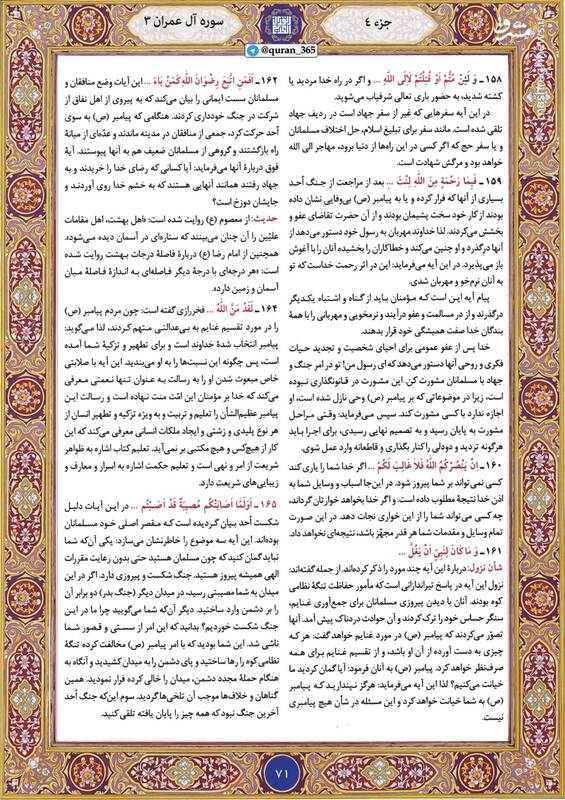 جزء ۴
سوره آل عمران ۳
@quran_365
مشرق
۱۵۸ـ وَ لَئِنْ مُتُّمْ أَوْ قُتِلْتُمْ لَاِلَی اللّٰهِ ... و اگر در راه خدا مردید یا
کشته شدید، به حضور باری تعالی شرفیاب می‌شوید.
در این آیه سفرهایی که غیر از سفر جهاد است در ردیف جهاد
تلقی شده است. مانند سفر برای تبلیغ اسلام، حل اختلاف مسلمانان
و یا سفر حج که اگر کسی در این راه‌ها از دنیا برود، مهاجر الی الله
خواهد بود و مرگش شهادت است.
۱۵۹ـ فَبِما رَحْمَةٍ مِنَ اللّٰهِ لِنْتَ ... بعد از مراجعت از جنگ اُحد
بسیاری از آنها که فرار کرده و یا به پیامبر (ص) بی‌وفایی نشان داده
بودند از کار خود سخت پشیمان بودند و از آن حضرت تقاضای عفو و
بخشش می‌کردند. لذا خداوند مهربان به رسول خود دستور می‌دهد از
آنها درگذرد و او چنین می‌کند و خطاکاران را بخشیده آنان را با آغوش
باز می‌پذیرد. در این آیه می‌فرماید: این در اثر رحمت خداست که تو
به آنان نرم‌خو و مهربان شدی.
پیام آیه این است که مؤمنان باید از گناه و اشتباه یکدیگر
درگذرند و از در مسالمت و عفو درآیند و نرم‌خویی و مهربانی را با همهٔ
بندگان خدا صفت همیشگی خود قرار بدهند.
خدا پس از عفو عمومی برای احیای شخصیت و تجدید حیات
فکری و روحی آنها دستور می‌دهد که ای رسول من! تو در امر جنگ و
جهاد با مسلمانان مشورت کن. این مشورت در قانونگذاری نبوده
است، زیرا در موضوعاتی که بر پیامبر (ص) وحی نازل شده است، او
اجازه ندارد با کسی مشورت کند. سپس می‌فرماید: وقتی مراحل
مشورت به پایان رسید و به تصمیم نهایی رسیدی، برای اجرا باید
هرگونه تردید و دودلی را کنار بگذاری و قاطعانه وارد عمل شوی.
۱۶۰ـ اِنْ یَنْصُرْکُمُ اللّٰهُ فَلاٰ غالِبَ لَکُمْ ... اگر خدا شما را یاری کند
کسی نمی‌تواند بر شما پیروز شود. در این‌جا اسباب و وسایل شما به
اذن خدا نتیجهٔ مطلوب داده است. و اگر خدا بخواهد خوارتان گرداند،
چه کسی می‌تواند شما را از این خواری نجات دهد. در این صورت
تمام وسایل و مقدمات شما هر قدر مجهّز باشد، نتیجه‌ای نخواهد داد.
۱۶۱ـ وَ ما کانَ لِنَبِیٍّ اَنْ یَغُلَّ ...
شأن نزول: دربارهٔ این آیه چند مورد را ذکر کرده‌اند. از جمله گفته‌اند:
نزول این آیه در پاسخ تیراندازانی است که مأمور حفاظت تنگهٔ نظامی
کوه بودند. آنان با دیدن پیروزی مسلمانان برای جمع‌آوری غنایم،
سنگر حساس خود را ترک کردند و آن حوادث دردناک پیش آمد. آنها
تصوّر می‌کردند که پیامبر (ص) در مورد غنایم خواهد گفت: هر که
چیزی به دست آورده از آن او باشد، و از تقسیم غنایم برای همه
صرف‌نظر خواهد کرد. پیامبر (ص) به آنان فرمود: آیا گمان کردید ما
خیانت می‌کنیم؟ لذا این آیه می‌فرماید: هرگز نپندارید که پیامبر
(ص) به شما خیانت خواهد کرد و این مسئله در شأن هیچ پیامبری
نیست.
۱۶۲ـ اَفَمَنِ اتَّبَعَ رِضْوانَ اللّٰهِ کَمَنْ باءَ ... این آیات وضع منافقان و
مسلمانان سست ایمانی را بیان می‌کند که به پیروی از اهل نفاق از
شرکت در جنگ خودداری کردند. هنگامی که پیامبر (ص) به سوی
اُحد حرکت کرد، جمعی از منافقان در مدینه ماندند و عدّه‌ای از میانهٔ
راه بازگشتند و گروهی از مسلمانان ضعیف هم به آنها پیوستند. آیهٔ
فوق دربارهٔ آنها می‌فرماید: آیا کسانی که رضای خدا را خریدند و به
جهاد رفتند همانند آنهایی هستند که به خشم خدا روی آوردند و
جایشان دوزخ است؟
حدیث: از معصوم (ع) روایت شده است: «اهل بهشت، اهل مقامات
علیّین را آن چنان می‌بینند که ستاره‌ای در آسمان دیده می‌شود».
همچنین از امام رضا (ع) دربارهٔ فاصلهٔ درجات بهشت روایت شده
است: «هر درجه‌ای با درجهٔ دیگر فاصله‌ای به اندازهٔ فاصلهٔ میان
آسمان و زمین دارد».
۱۶۴ـ لَقَدْ مَنَّ اللّٰهُ ... فخررازی گفته است: چون مردم پیامبر (ص)
را در مورد تقسیم غنایم به بی‌عدالتی متهم کردند، لذا می‌گوید:
پیامبر انتخاب شدهٔ خداوند است و برای تطهیر و تزکیهٔ شما آمده
است، پس چگونه این نسبت‌ها را به او می‌بندید. این آیه با صلابتی
خاص مبعوث شدن او را به رسالت به عنوان تنها نعمتی معرفی
می‌کند که خدا بر مؤمنان این امّت منت نهاده است و رسالت این
پیامبر عظیم‌الشأن را تعلیم و تربیت و به ویژه تزکیه و تطهیر انسان از
هر نوع پلیدی و زشتی و ایجاد ملکات انسانی معرفی می‌کند که این
کار از هیچ‌کس و هیچ مکتبی بر نمی‌آید. تعلیم کتاب اشاره به ظواهر
شریعت از امر و نهی است و تعلیم حکمت اشاره به اسرار و معارف و
زیبایی‌های شریعت دارد.
۱۶۵ـ اَوَلَمّا اَصابَتْکُمْ مُصیبَةٌ قَدْ اَصَبْتُمْ ... در این آیات دلیل
شکست اُحد بیان گردیده است که مقصر اصلی خود مسلمانان
بوده‌اند. این آیه سه موضوع را خاطرنشان می‌سازد: یکی آن‌که شما
نباید گمان کنید که چون مسلمان هستید حتی بدون رعایت مقررات
الهی همیشه پیروز هستید. جنگ شکست و پیروزی دارد. اگر در این
میدان به شما مصیبتی رسید، در میدان دیگر (جنگ بدر) دو برابر آن
را بر دشمن وارد ساختید. دیگر آن‌که شما می‌گویید چرا ما در این
جنگ شکست خوردیم؟ بدانید که این امر از سستی و قصور شما
ناشی شد. این شما بودید که با امر پیامبر (ص) مخالفت کرده تنگهٔ
نظامی کوه را رها ساختید و پای دشمن را به میدان کشیدید و آنگاه به
هنگام حملهٔ مجدد دشمن، میدان را خالی کرده فرار نمودید. همین
گناهان و خلاف‌ها موجب آن تلخی‌ها گردید. سوم این‌که جنگ اُحد
آخرین جنگ نبود که همه چیز را پایان یافته تلقی کنید.
۷۱